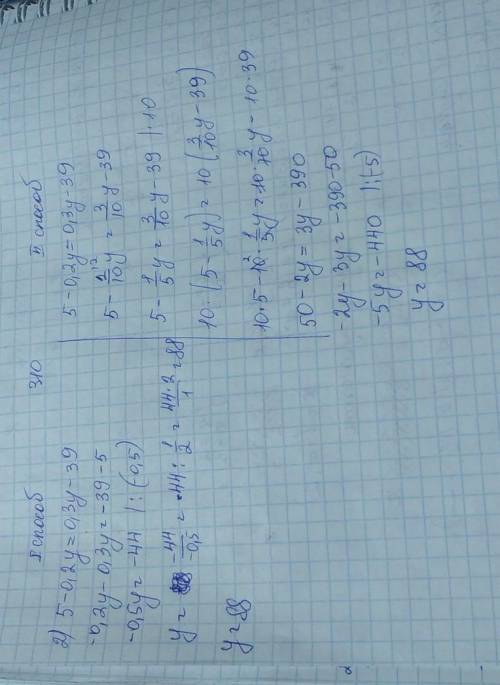 310
I способ
2) 5-0,2y=0,3y-39
-0,2y-0,3y=-39-5
-0,5y=-44 |:(-0,5)
y= -44/-0,5 = -44: 1/2 = 44·2/1 =88
y=88
II способ
5-0,2y=0,3y-39
5- 2/10 y = 3/10 y-39
5- 1/5 y= 3/10 y-39 |·10
10·(5- 1/5 y)=10( 3/10 y-39)
10·5-10· 1/5 y=10· 3/10 y-10·39
50-2y=3y-390
-2y-3y=-390-50
-5y=-440 |:(-5)
y=88